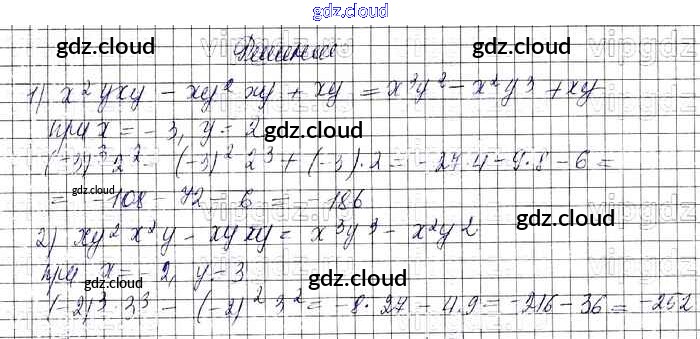 gdz.cloud
gdz.cloud gdz.cloud vipgdz
Решение
1) x²yxy - xy²xy + xy = x³y² - x²y³ + xy
при x = -3, y = 2 gdz.cloud
(-3)³·2² - (-3)²·2³ + (-3)·2 = -27·4 - 9·8 - 6 =
= -108 - 72 - 6 = -186
gdz.cloud gdz.cloud
2) xy²x²y - xyxy = x³y³ - x²y²
при x = -2, y = 3
gdz.cloud gdz.cloud
(-2)³·3³ - (-2)²·3² = -8·27 - 4·9 = -216 - 36 = -252